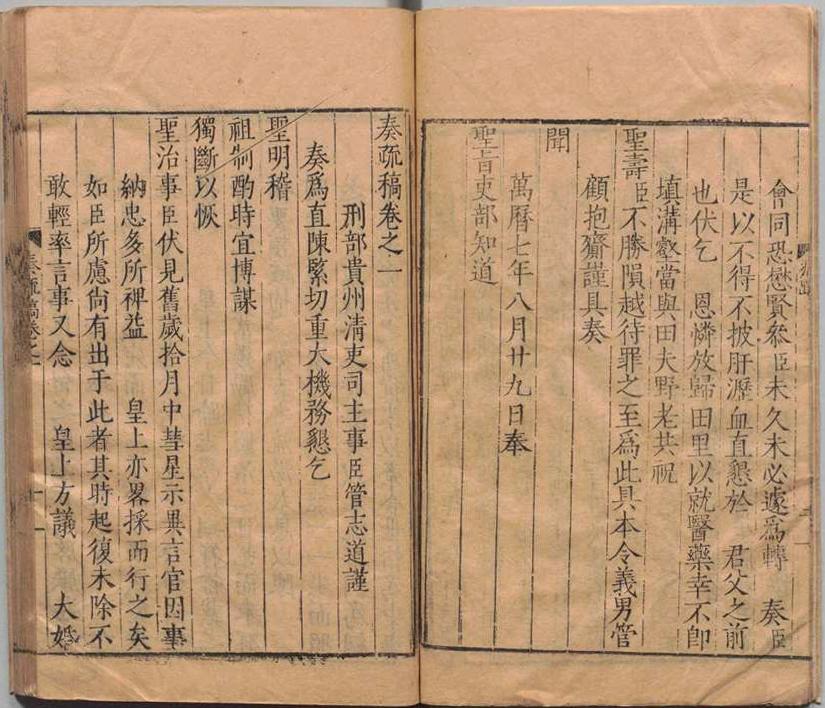 會同恐懋賢參臣未久未必遽為轉 奏臣
是以不得不披肝瀝血直懇於 君父之前
也伏乞 恩憐放歸田里以就醫藥幸不即
填溝壑當與田夫野老共祝
聖壽臣不勝隕越待罪之至爲此具本令義男管
顧抱齎謹具奏
聞
萬曆七年八月廿九日奉
聖旨吏部知道
奏疏稿卷之一
刑部貴州清吏司主事臣管志道謹
奏爲直陳緊切重大機務懇乞
聖明稽
祖制酌時宜博謀
獨斷以恢
聖治事臣伏見舊歲拾月中彗星示異言官因事
納忠多所裨益 皇上亦畧採而行之矣
如臣所慮尚有出于此者其時起復未除不
敢輕率言事又念 皇上方議 大婚
奏疏稿卷之一